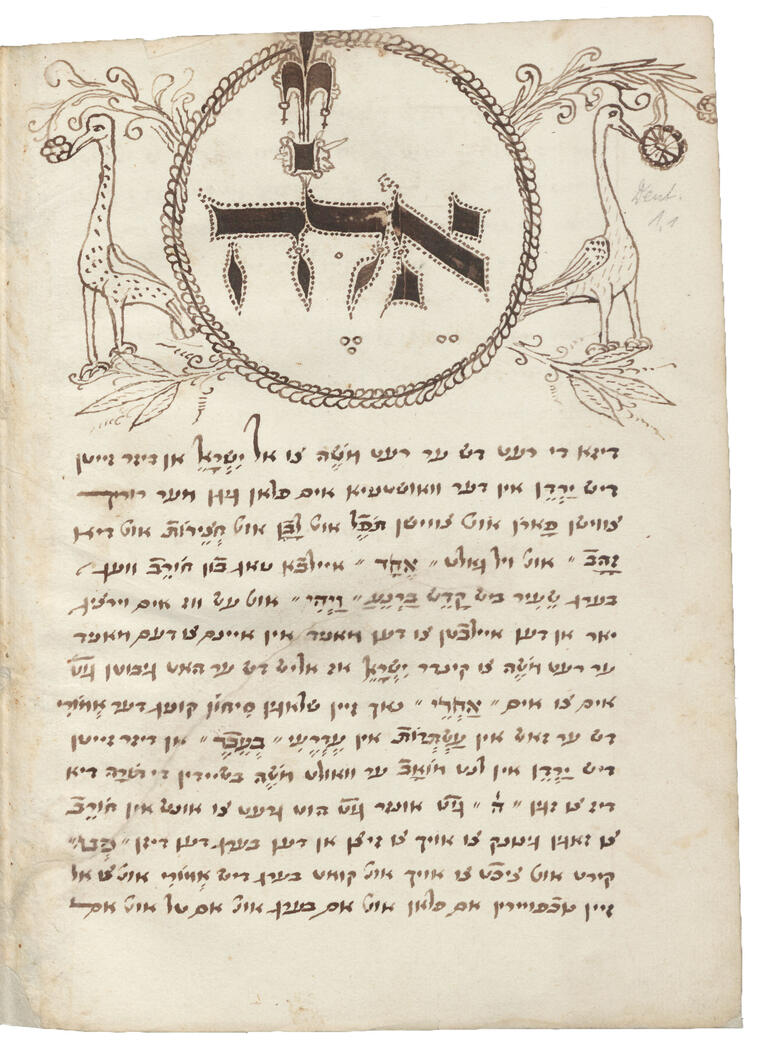 אלה
Deut.
1,1
דיזא די רעט דש ער רעט מֹשֶה צו אל יִשְרָאֵל אן דיזר זייטן
דיש יַרְדֵן אין דער אים פלאן גיגן מער
צווישן פארן אונ' צווישן תֹפֶל אונ' לָבָן אונ' חֲצֵירוֹת אונ' דיא
זָהָב " אונ' ויל גולט " אֶחָד " איילבא טאג בֿון חוֹרֵב וועג
בערג שֵעִיר ביש קָדֵש בַרְנֵעַ " וַיְהִי " אונ' עש וור אים וירציג
יאר אן דען איילבֿטן צו דען מאנד אין איינם צו דעם מאנד
ער רעט מֹשֶה צו קינדר יִשְרָאֵל אז אליש דש ער האט גיבוטן גוט
אים צו אים " אַחֲרֵי " נאך זיין שלאגן סִיחוֹן קוניג דער אֱמוֹרִי
דש ער זאש אין עַשְתָרוֹת אין " בְעֵבֶר " אן דיזר זייטן
דיש יַרְדֵן אין לנט מוֹאָב ער וואולט מֹשֶה בשיידין די תוֹרָה דיא
דיז צו זגן " ה' " גוט אונזר גוט הוט גרעט צו אונש אין חוֹרֵב
צו זאגן גינונק צו אויך צו זיצן אן דען בערג דען דיזן " פְנוּ "
קירט אונ' ציכט צו אויך אונ' קומט בערג דיש אֱמוֹרִי אונ' צו אל
זיין אם פלאן אונ' אם בערג אונ' אם טל אונ' אם